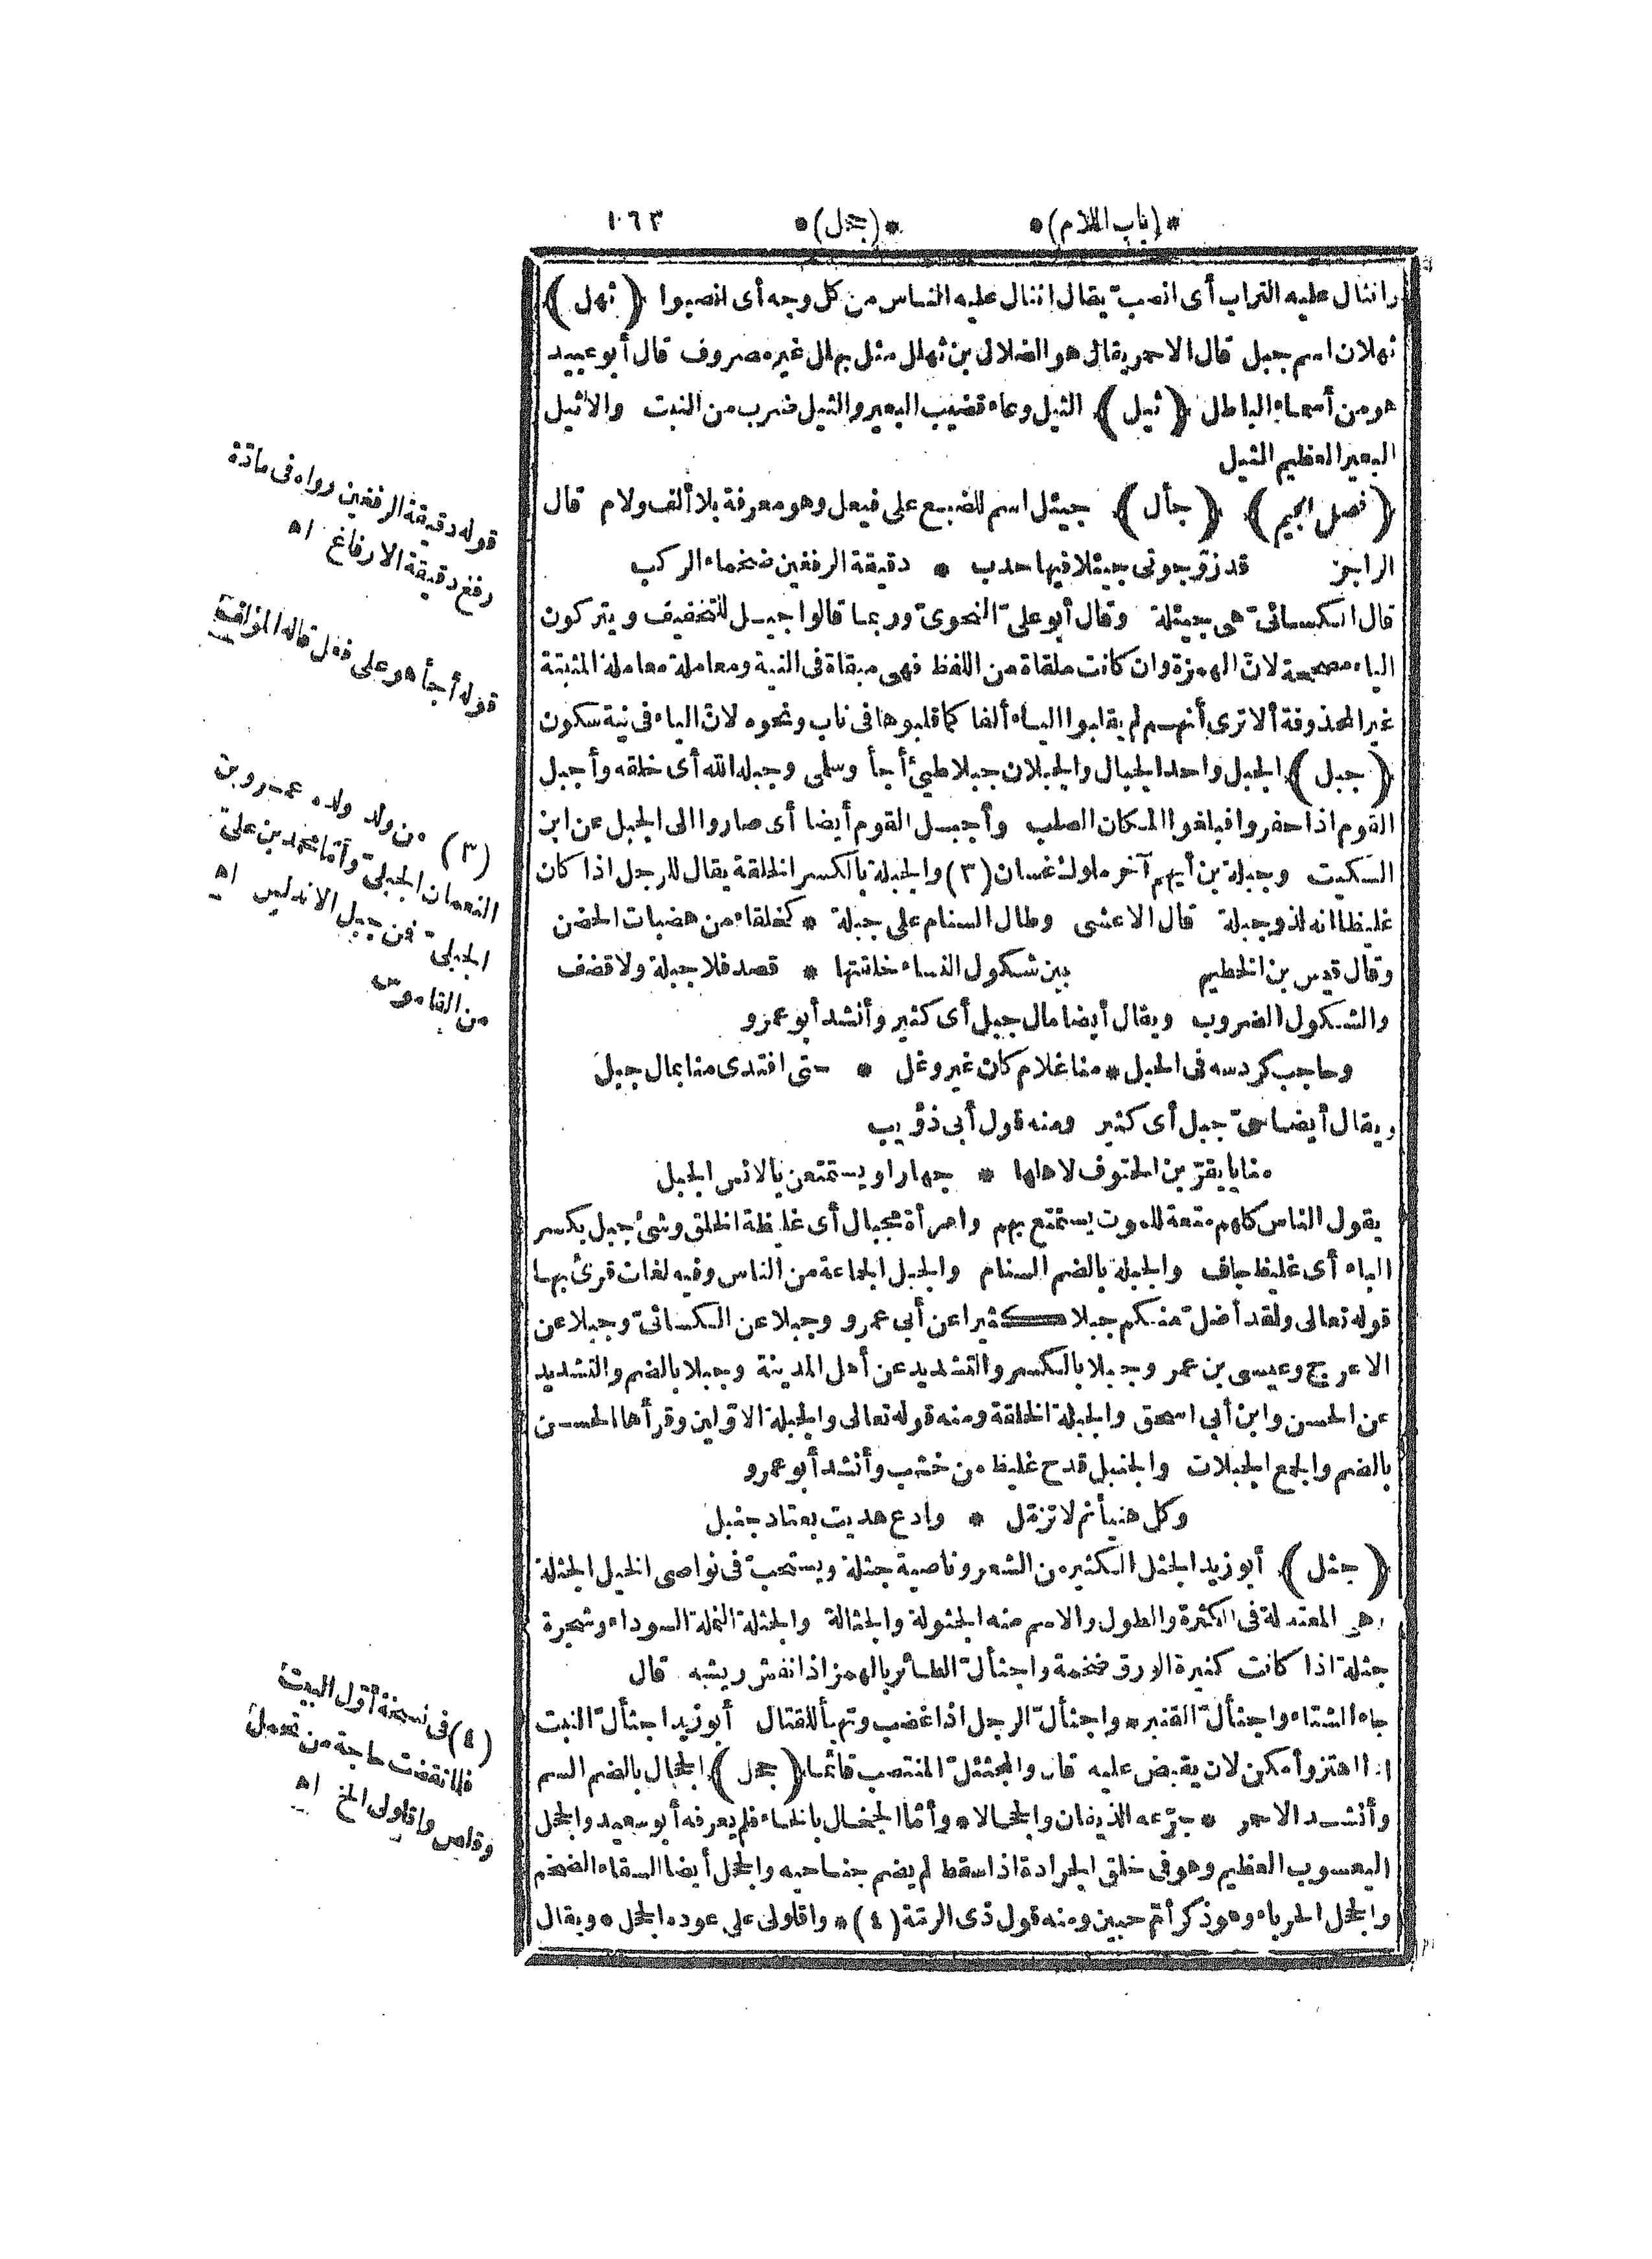 * (باب اللام) * * (جحل) * ١٠٦٣
وانثال عليه التراب أى انصبّ يقال انثال عليه الناس من كل وجه أى انصبوا (ثهل)
ثهلان اسم جبل قال الاحمر يقال هو الضلال بن ثهلل مثل بهلل غير مصروف قال أبو عبيد
هو من أسماء الباطل (ثيل) الثيل وعاء قضيب البعير والثيل ضرب من النبت والاثيل
البعير العظيم الثيل
(فصل الجيم) (جأل) جيئل اسم للضبع على فيعل وهو معرفة بلا ألف ولام قال
الراجز قد زوّجونى جيئلا فيها حدب * دقيقة الرفغين ضخماء الركب
قال الكسائىّ هى جيئلة وقال أبو علىّ النحوىّ وربما قالوا جيل للتخفيف ويتركون
الياء مصححة لانّ الهمزة وان كانت ملقاة من اللفظ فهى مبقاة فى النية ومعاملة معاملة المثبتة
غير المحذوفة ألا ترى أنهم لم يقلبوا الياء ألفا كما قلبوها فى ناب ونحوه لانّ الياء فى نية سكون
(جبل) الجبل واحد الجبال والجبلان جبلا طيئ أجأ وسلمى وجبله الله أى خلقه وأجبل
القوم اذا حفروا فبلغوا المكان الصلب وأجبل القوم أيضا أى صاروا الى الجبل عن ابن
السكيت وجبلة بن أيهم آخر ملوك غسان (٣) والجبلة بالكسر الخلقة يقال للرجل اذا كان
غليظا انه لذو جبلة قال الاعشى وطال السنام على جبلة * كخلقاء من هضبات الحضن
وقال قيس بن الخطيم بين شكول النساء خلقتها * قصد فلا جبلة ولا قضف
والشكول الضروب ويقال أيضا مال جبل أى كثير وأنشد أبو عمرو
وحاجب كردسه فى الحبل * منا غلام كان غير وغل * حتى افتدى منا بمال جبل
ويقال أيضا حىّ جبل أى كثير ومنه قول أبى ذؤيب
منايا يقرّبن الحتوف لاهلها * جهارا ويستمتعن بالانس الجبل
يقول الناس كلهم متعة للموت يستمتع بهم وامرأة مجبال أى غليظة الخلق وشئ جبل بكسر
الباء أى غليظ جاف والجبلة بالضم السنام والجبل الجماعة من الناس وفيه لغات قرئ بها
قوله تعالى ولقد أضلّ منكم جبلا كثيرا عن أبى عمرو وجبلا عن الكسائىّ وجبلا عن
الاعرج وعيسى بن عمر وجبلا بالكسر والتشديد عن أهل المدينة وجبلا بالضم والتشديد
عن الحسن وابن أبى اسحق والجبلة الخلقة ومنه قوله تعالى والجبلة الاوّلين وقرأها الحسن
بالضم والجمع الجبلات والجنبل قدح غليظ من خشب وأنشد أبو عمرو
وكل هنيأ ثم لا تزمّل * وادع هديت بعتاد جنبل
(جثل) أبو زيد الجثل الكثير من الشعر وناصية جثلة ويستحبّ فى نواصى الخيل الجثلة
وهى المعتدلة فى الكثرة والطول والاسم منه الجثولة والجثالة والجثلة النملة السوداء وشجرة
جثلة اذا كانت كثيرة الورق ضخمة واجثألّ الطائر بالهمز اذا نفش ريشه قال
جاء الشتاء واجثألّ القنبر * واجثألّ الرجل اذا غضب وتهيأ للقتال أبو زيد اجثألّ النبت
اذا اهتز وأمكن لان يقبض عليه قال والمجثئلّ المنتصب قائما (جحل) الجحال بالضم السم
وأنشد الاحمر * جرّعه الذيفان والجحالا * وأمّا الجخال بالخاء فلم يعرفه أبو سعيد والجحل
اليعسوب العظيم وهو فى خلق الجرادة اذا سقط لم يضم جناحيه والجحل أيضا السقاء الضخم
والجحل الحرباء وهو ذكر أمّ حبين ومنه قول ذى الرمّة (٤) * واقلولى على عوده الجحل * ويقال
قوله دقيقة الرفغين رواه فى مادّة
رفغ دقيقة الارفاغ اه
قوله أجأ هو على فعل قاله المؤلف
(٣) من ولد ولده عمرو بن
النعمان الجبلىّ وأمّا محمد بن علىّ
الجبلىّ فمن جبل الاندلس اه
من القاموس
(٤) فى نسخة أوّل البيت
فلما تقضت حاجة من تحمل
وقلص واقلولى الخ اه